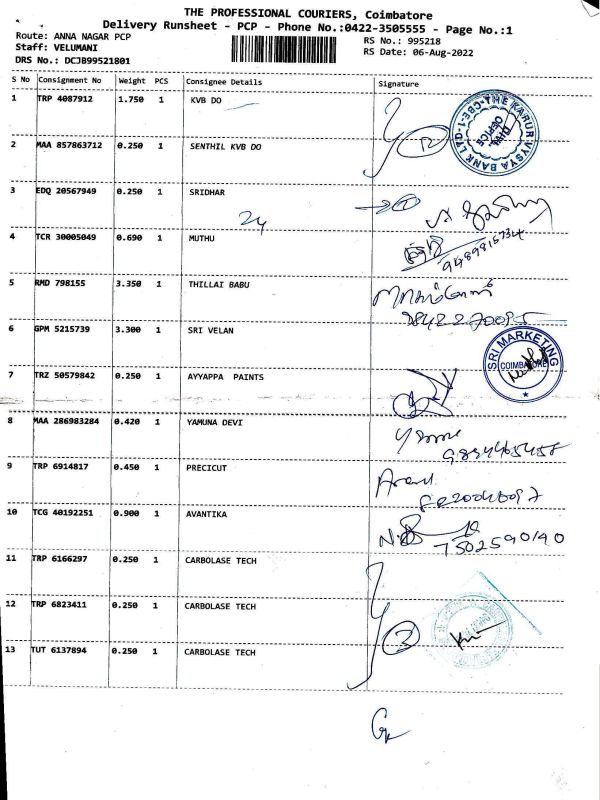 THE PROFESSIONAL COURIERS, Coimbatore
Delivery Runsheet - PCP - Phone No.:0422-3505555 - Page No.:1
Route: ANNA NAGAR PCP RS No.: 995218
Staff: VELUMANI RS Date: 06-Aug-2022
DRS No.: DCJB99521801
S No Consignment No Weight PCS Consignee Details Signature
1 TRP 4087912 1.750 1 KVB DO
THE KARUR VYSYA BANK LTD
2 MAA 857863712 0.250 1 SENTHIL KVB DO
3 EDQ 20567949 0.250 1 SRIDHAR
24
4 TCR 30005049 0.690 1 MUTHU
5 RMD 798155 3.350 1 THILLAI BABU
6 GPM 5215739 3.300 1 SRI VELAN
SRI MARKETING
COIMBATORE
7 TRZ 50579842 0.250 1 AYYAPPA PAINTS
8 MAA 286983284 0.420 1 YAMUNA DEVI
9 TRP 6914817 0.450 1 PRECICUT
10 TCG 40192251 0.900 1 AVANTIKA
7502590190
11 TRP 6166297 0.250 1 CARBOLASE TECH
12 TRP 6823411 0.250 1 CARBOLASE TECH
13 TUT 6137894 0.250 1 CARBOLASE TECH